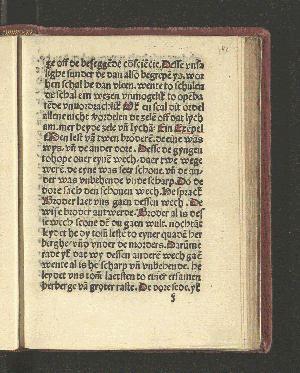 ge off de beseggēde cōsciēcie. Desse vnsa
lighe sunder de dan also begrepē ys. wor
hen schal he dan vleen. wente to schulen
de schal em wezen vnmogelik to openba
tēde vnuordrachlik Ok en scal dit ordel
allene nicht vordelen de zele off dat lych
am. mer beyde zele vn̄ lychā. Ein Exēpel
En lest vā twen broderē. de eine was
wys. vn̄ de ander dore. Desse de gyngen
tohope ouer eynē wech. daer twe wege
werē. de eyne was seer schone. vn̄ de an
der was vnbehende vnde scharp. Do de
dore sach den schonen wech. He sprack
Broder laet vns gaen dessen wech. De
wise broder antwerde. Broder al is des
se wech scone dē du gaen wult. nochtās
leydet he dy tom leste to eyner quadē her
berghe vn̄ vnder de morders. Darume
rade yk dat wy dessen anderē wech gaē
wente al is he scharp vn̄ vnbehende. he
leydet vns tom laetsten to einer ersamen
herberge vn̄ groter raste. De dore sede. yk